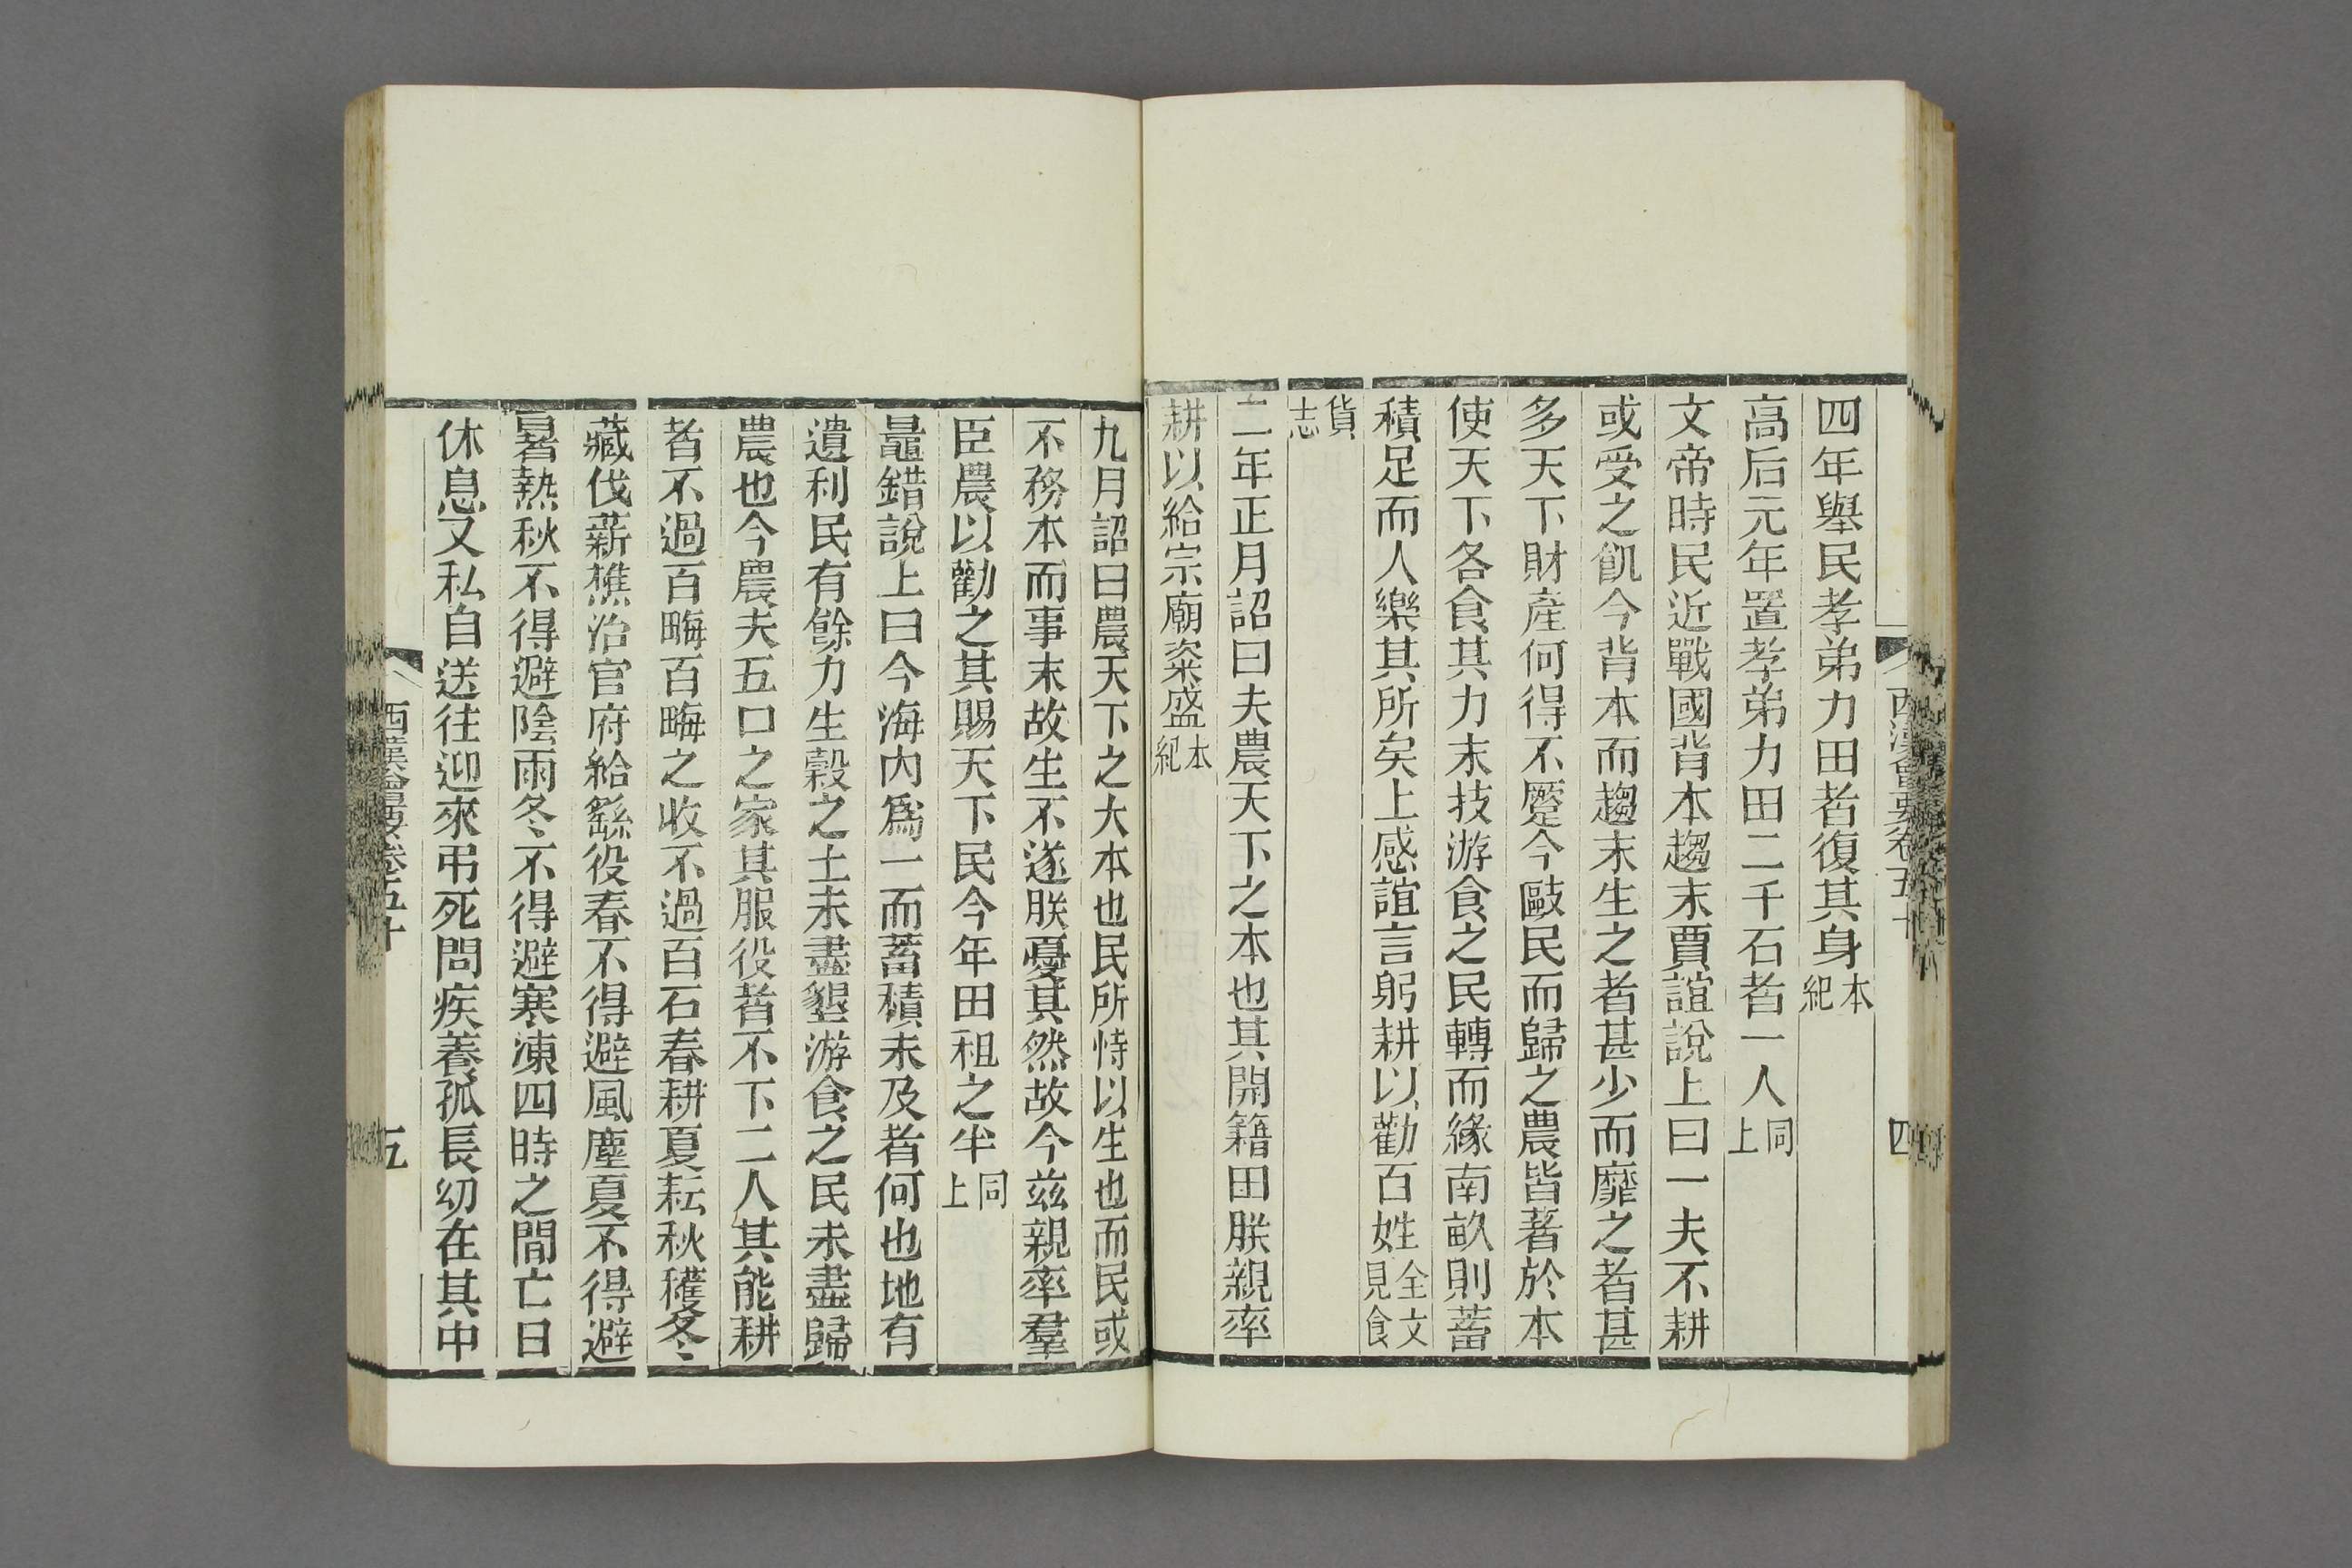 四年舉民孝弟力田者復其身本紀
高后元年置孝弟力田二千石者一人同上
文帝時民近戰國背本趨末賈誼說上曰一夫不耕
或受之飢今背本而趨末生之者甚少而靡之者甚
多天下財產何得不蹷今敺民而歸之農皆著於本
使天下各食其力末技游食之民轉而緣南畝則蓄
積足而人樂其所矣上感誼言躬耕以勸百姓全文見食
貨志
二年正月詔曰夫農天下之本也其開籍田朕親率
耕以給宗廟粢盛本紀
西漢會要卷五十
四
九月詔曰農天下之大本也民所恃以生也而民或
不務本而事末故生不遂朕憂其然故今兹親率羣
臣農以勸之其賜天下民今年田租之半同上
鼂錯說上曰今海内爲一而蓄積未及者何也地有
遺利民有餘力生穀之土未盡墾游食之民未盡歸
農也今農夫五口之家其服役者不下二人其能耕
者不過百畮百畮之收不過百石春耕夏耘秋穫冬
藏伐薪樵治官府給繇役春不得避風塵夏不得避
暑熱秋不得避陰雨冬不得避寒凍四時之間亡日
休息又私自送往迎來弔死問疾養孤長幼在其中
西漢會要卷五十
五